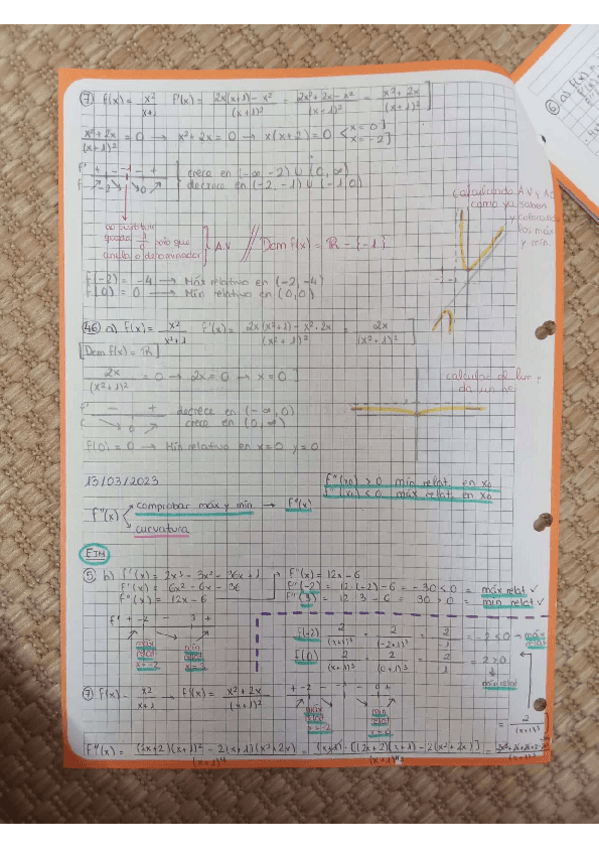 ⑦ f(x) = x²/(x+1) f'(x) = (2x(x+1) - x²)/(x+1)² = (2x²+2x-x²)/(x+1)² = (x²+2x)/(x+1)²
(x²+2x)/(x+1)² = 0 → x²+2x = 0 → x(x+2) = 0 < x=0 x=-2
f' + -1 - + crece en (-∞ -2) U (0, ∞)
f -2 0 decrece en (-2, -1) U (-1,0)
calculando AV y
como ya saben
y colocando
los máx
y mín.
al sustituir
queda
anula o denominador } A.V // Dom f(x) = ℝ - {-1}
-2 -1
f(-2) = -4 → Máx relativo en (-2, -4)
f(0) = 0 → Mín relativo en (0,0)
④⑥ a) f(x) = x²/(x²+1) f'(x) = (2x(x²+1) - x²·2x)/(x²+1)² = 2x/(x²+1)²
[Dom f(x) = ℝ]
2x/(x²+1)² = 0 → 2x = 0 → x = 0]
calcular
f' - + decrece en (-∞, 0)
f 0 crece en (0, ∞)
f(0) = 0 → Mín relativo en x=0 y=0
13/03/2023
f''(x0) > 0 mín relat. en x0
f''(x0) < 0 máx relat. en x0
f''(x) < comprobar máx y mín. → f''(x)
curvatura
EJM
⑤ b) f(x) = 2x³ - 3x² - 36x + 1 f''(x) = 12x - 6
f'(x) = 6x² - 6x - 36 f''(-2) = 12·(-2) - 6 = -30 < 0 = máx relat ✓
f''(x) = 12x - 6 f''(3) = 12·3 - 6 = 30 > 0 = mín relat ✓
f' + -2 - 3 +
máx relat x=-2
mín relat x=3
f(-2) 2/(x+1)³ = 2/(-2+1)³ = 2/-1 = -2 < 0 → máx relat
f(0) 2/(x+1)³ = 2/(0+1)³ = 2/1 = 2 > 0
mín relat
⑦ f(x) = x²/(x+1) → f'(x) = (x²+2x)/(x+1)² + -2 - -1 - 0 +
máx relat x=-2
mín relat x=0
= 2/(x+1)³
f''(x) = ((2x+2)(x+1)² - 2(x+1)(x²+2x))/(x+1)⁴ = (x+1)·[(2x+2)(x+1) - 2(x²+2x)]/(x+1)⁴ =
⑥ a) f(x) =